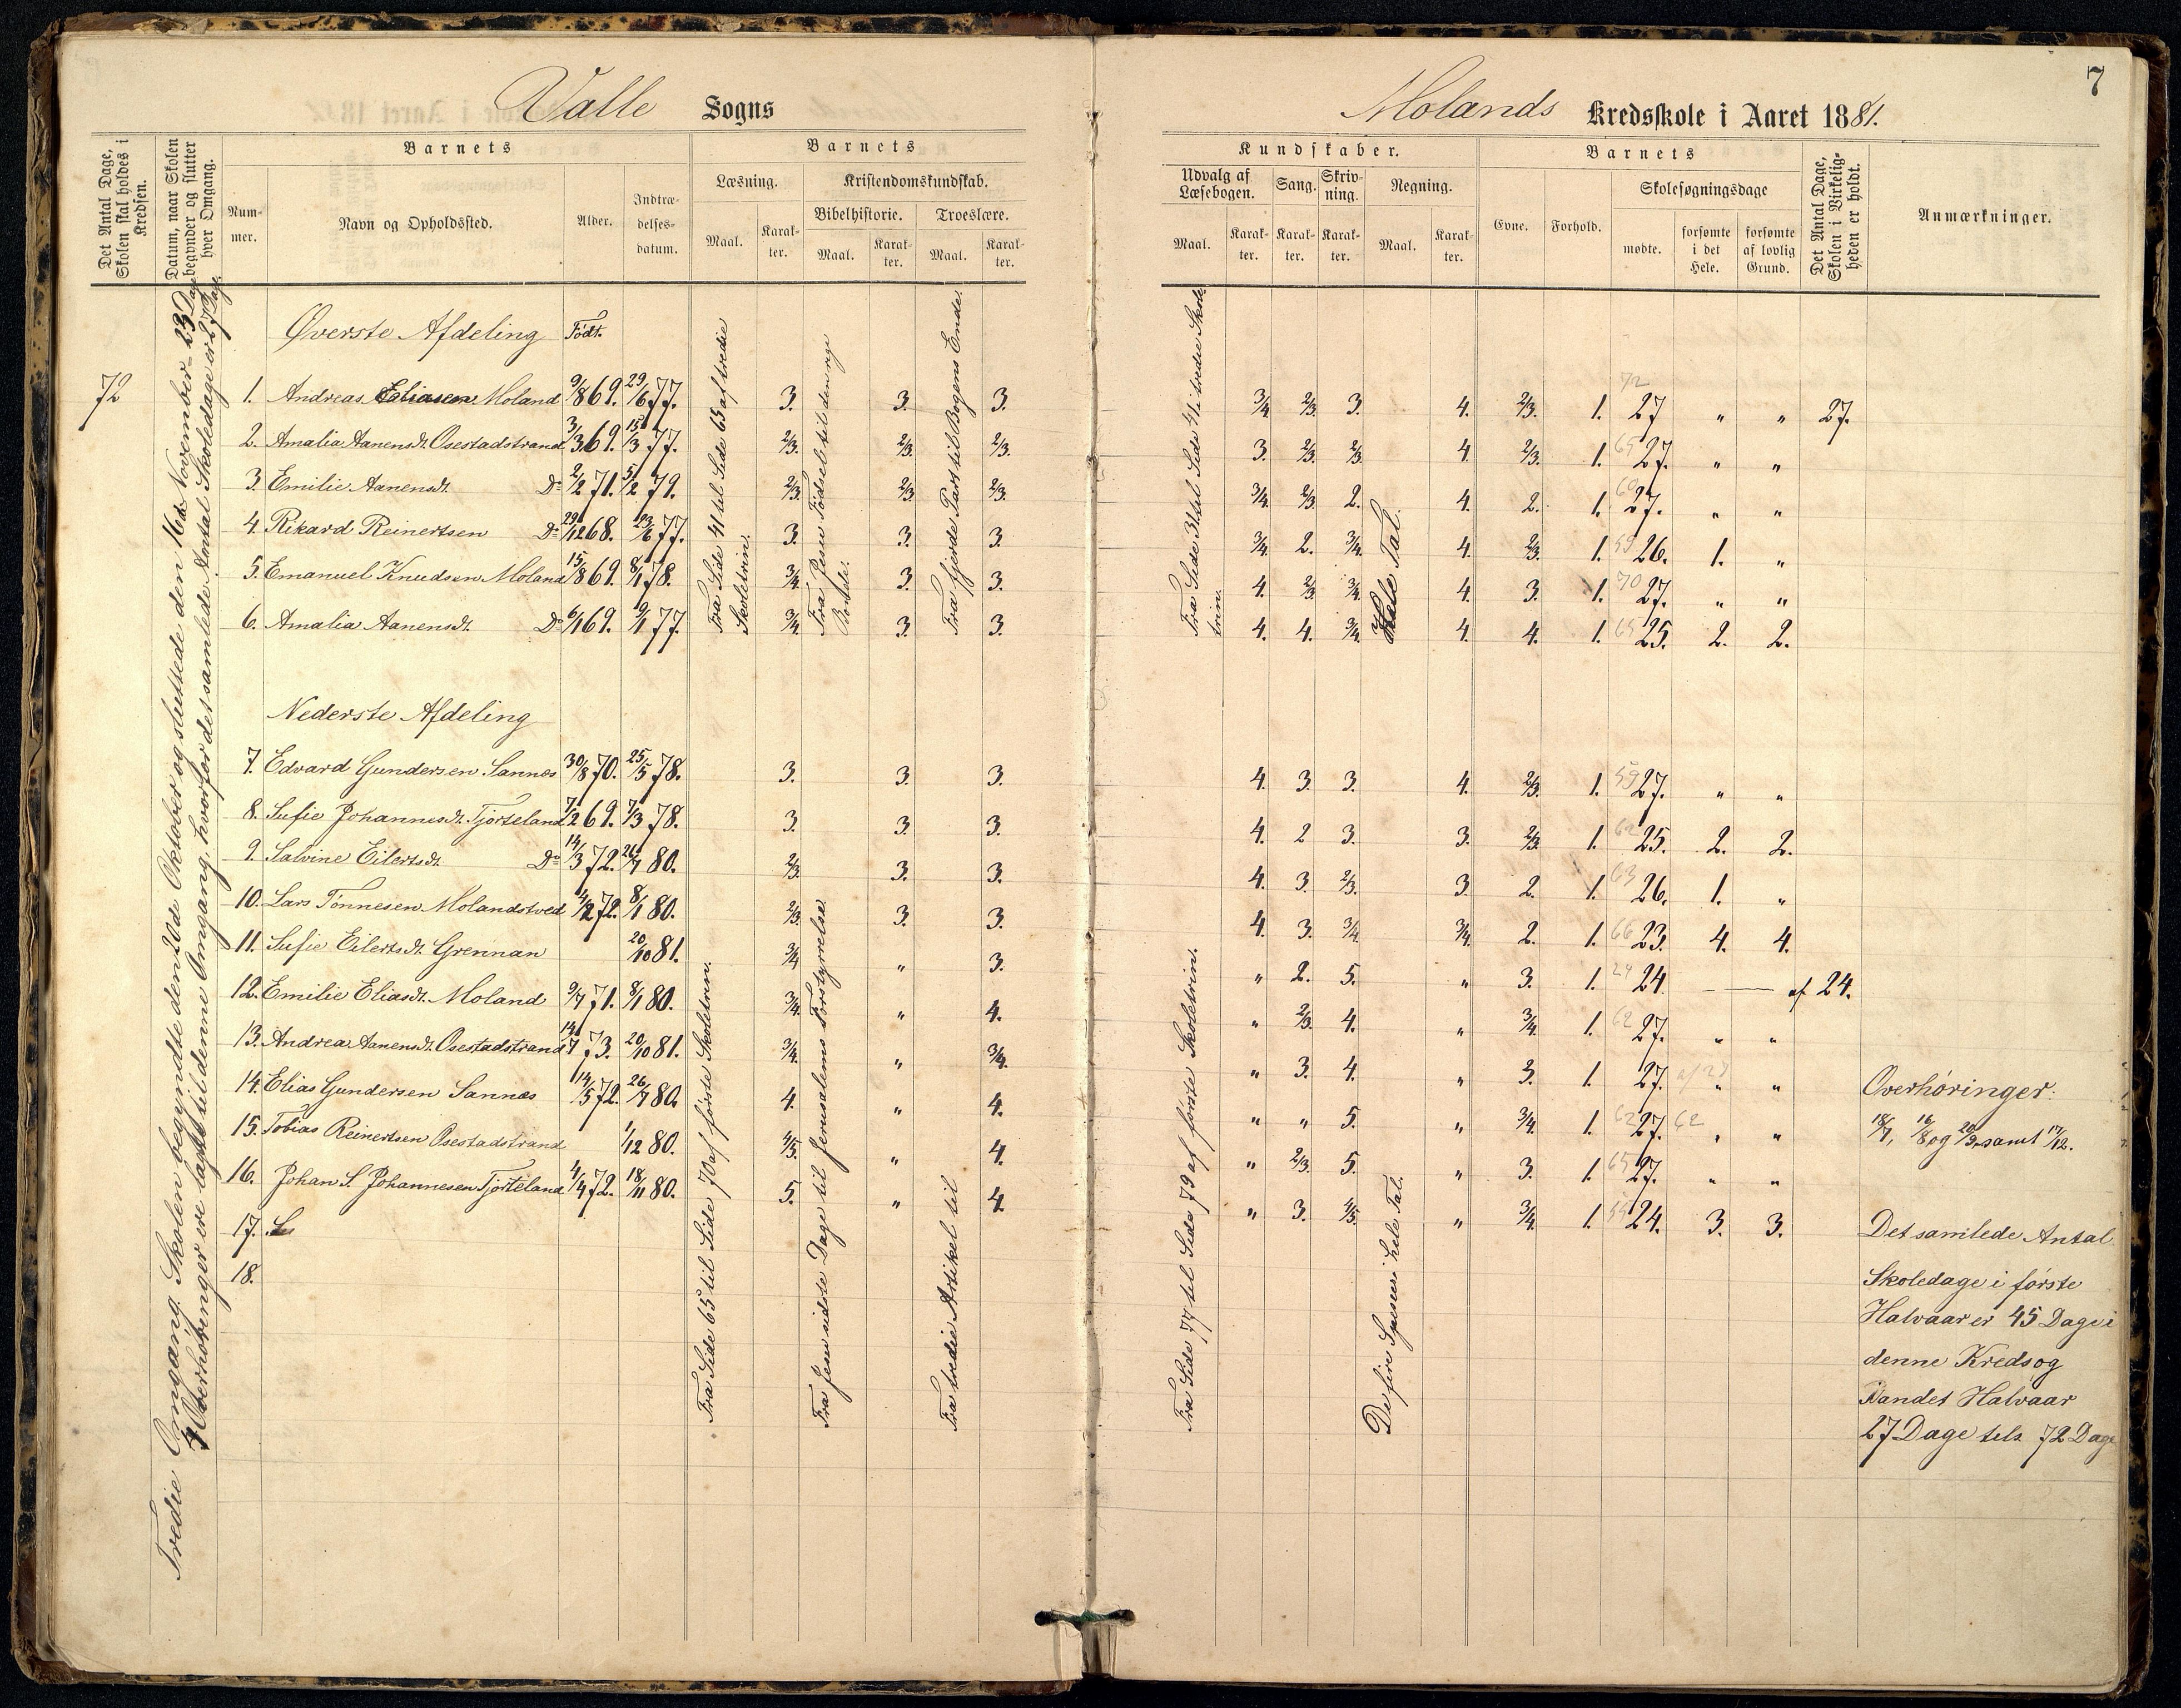 7
Valle Sogns
Molands Kredsskole i Aaret 1881.
Det Antal Dage, Skolen skal holdes i Kredsen.
Datum, naar Skolen begynder og slutter hver Omgang.
Barnets
Nummer.
Navn og Opholdssted.
Alder.
Indtrædelsesdatum.
Barnets
Læsning.
Maal.
Karakter.
Kristendomskundskab.
Bibelhistorie.
Maal.
Karakter.
Troeslære.
Maal.
Karakter.
Kundskaber.
Udvalg af Læsebogen.
Maal.
Karakter.
Sang.
Karakter.
Skrivning.
Karakter.
Regning.
Maal.
Karakter.
Barnets
Evne.
Forhold.
Skolesøgningsdage
mødte.
forsømte i det Hele.
forsømte af lovlig Grund.
Det Antal Dage, Skolen i Virkeligheden er holdt.
Anmærkninger.
72
Tredie Omgang. Skolen begyndte den 20de Oktober og sluttede den 16de November = 23 Dage
4 Overhøringer ere lagte til denne Omgang, hvorfor det samlede Antal Skoledage er 27 Dage.
Øverste Afdeling Født.
1. Andreas Eliasen Moland 9/8 69. 29/6 77. 3. 3. 3. 3/4 2/3. 3. 4. 2/3. 1. 72 27 " " 27.
2. Amalia Aanensdt. Osestadstrand 3/3 69. 15/3 77. 2/3. 2/3. 2/3. 3. 2/3. 2/3. 4. 2/3. 1. 65 27. " "
3. Emilie Aanensdt. Do 2/2 71. 5/2 79. 2/3. 2/3. 2/3. 3/4. 2/3. 2. 4. 2. 1. 60 27. " "
4. Rikard Reinertsen Do 29/12 68. 23/6 77. 3. 3. 3. 3/4. 2. 3/4. 4. 2/3. 1. 59 26. 1. "
5. Emanuel Knudsen Moland 15/8 69. 8/1 78. 3/4. 3. 3. 4. 2/3. 3/4. 4. 3. 1. 70 27. " "
6. Amalia Aanensdt. Do 6/1 69. 9/1 77. 3/4. 3. 3. 4. 4. 3/4. 4. 4. 1. 65 25. 2. 2.
Fra Side 41 til Side 65 af tredie Skoletrin.
Fra Jesu Fødsel til den rige
Fra fjerde Part til Bogens Ende.
Fra Side 31 til Side 41 i tredie Skoletrin.
Hele Tal.
Nederste Afdeling
7. Edvard Gundersen Sannes 30/8 70. 25/5 78. 3. 3. 3. 4. 3. 3. 4. 2/3. 1. 59 27. " "
8. Sufie Johannesdt. Tjorteland 7/2 69. 7/3 78. 3. 3. 3. 4. 2 3. 3. 2/3. 1. 62 25. 2. 2.
9. Salvine Eilertsdt. Do 14/3 72. 26/7 80. 2/3. 3. 3. 4. 3. 2/3. 3. 2. 1. 63 26. 1. "
10. Lars Tønnesen Molandstved 4/2 72. 8/1 80. 2/3. 3. 3. 4. 3. 3/4. 3/4. 2. 1. 66 23. 4. 4.
11. Sufie Eilertsdt. Grennan 20/10 81. 3/4 " 3. " 2. 5. " 3. 1. 24 24 — — af 24.
12. Emilie Eliasdt. Moland 9/7 71. 8/1 80. 3/4. " 4. " 2/3. 4. " 3/4. 1. 62 27. " "
13. Andrea Aanensdt. Osestadstrand 14/7 73. 20/10 81. 3/4. " 3/4. " 3. 4. " 3. 1. 27. af 27 " "
14. Elias Gundersen Sannes 14/5 72. 26/7 80. 4. " 4. " " 5. " 3/4. 1. 62 27. 62 " "
15. Tobias Reinertsen Osestadstrand 1/12 80. 4/5. " 4. " 2/3. 5. " 3. 1. 65 27. " "
16. Johan S. Johannesen Tjorteland 4/4 72. 18/11 80. 5. " 4. " 3. 4/5. " 3/4. 1. 24. 3. 3.
17.
18.
Fra Side 65 til Side 70 af første Skoletrin.
Fra Jesu sidste Dage til Jerusalems Forstyrrelse
Fra tredie Artikel til
Fra Side 77 til Side 79 af første Skoletrin.
De fire Spesier i hele Tal.
Overhøringer:
18/7, 16/8 og 20/9 samt 17/12.
Det samlede Antal
Skoledage i første
Halvaar er 45 Dage i
denne Kreds og
i andet Halvaar
27 Dage tils. 72 Dage